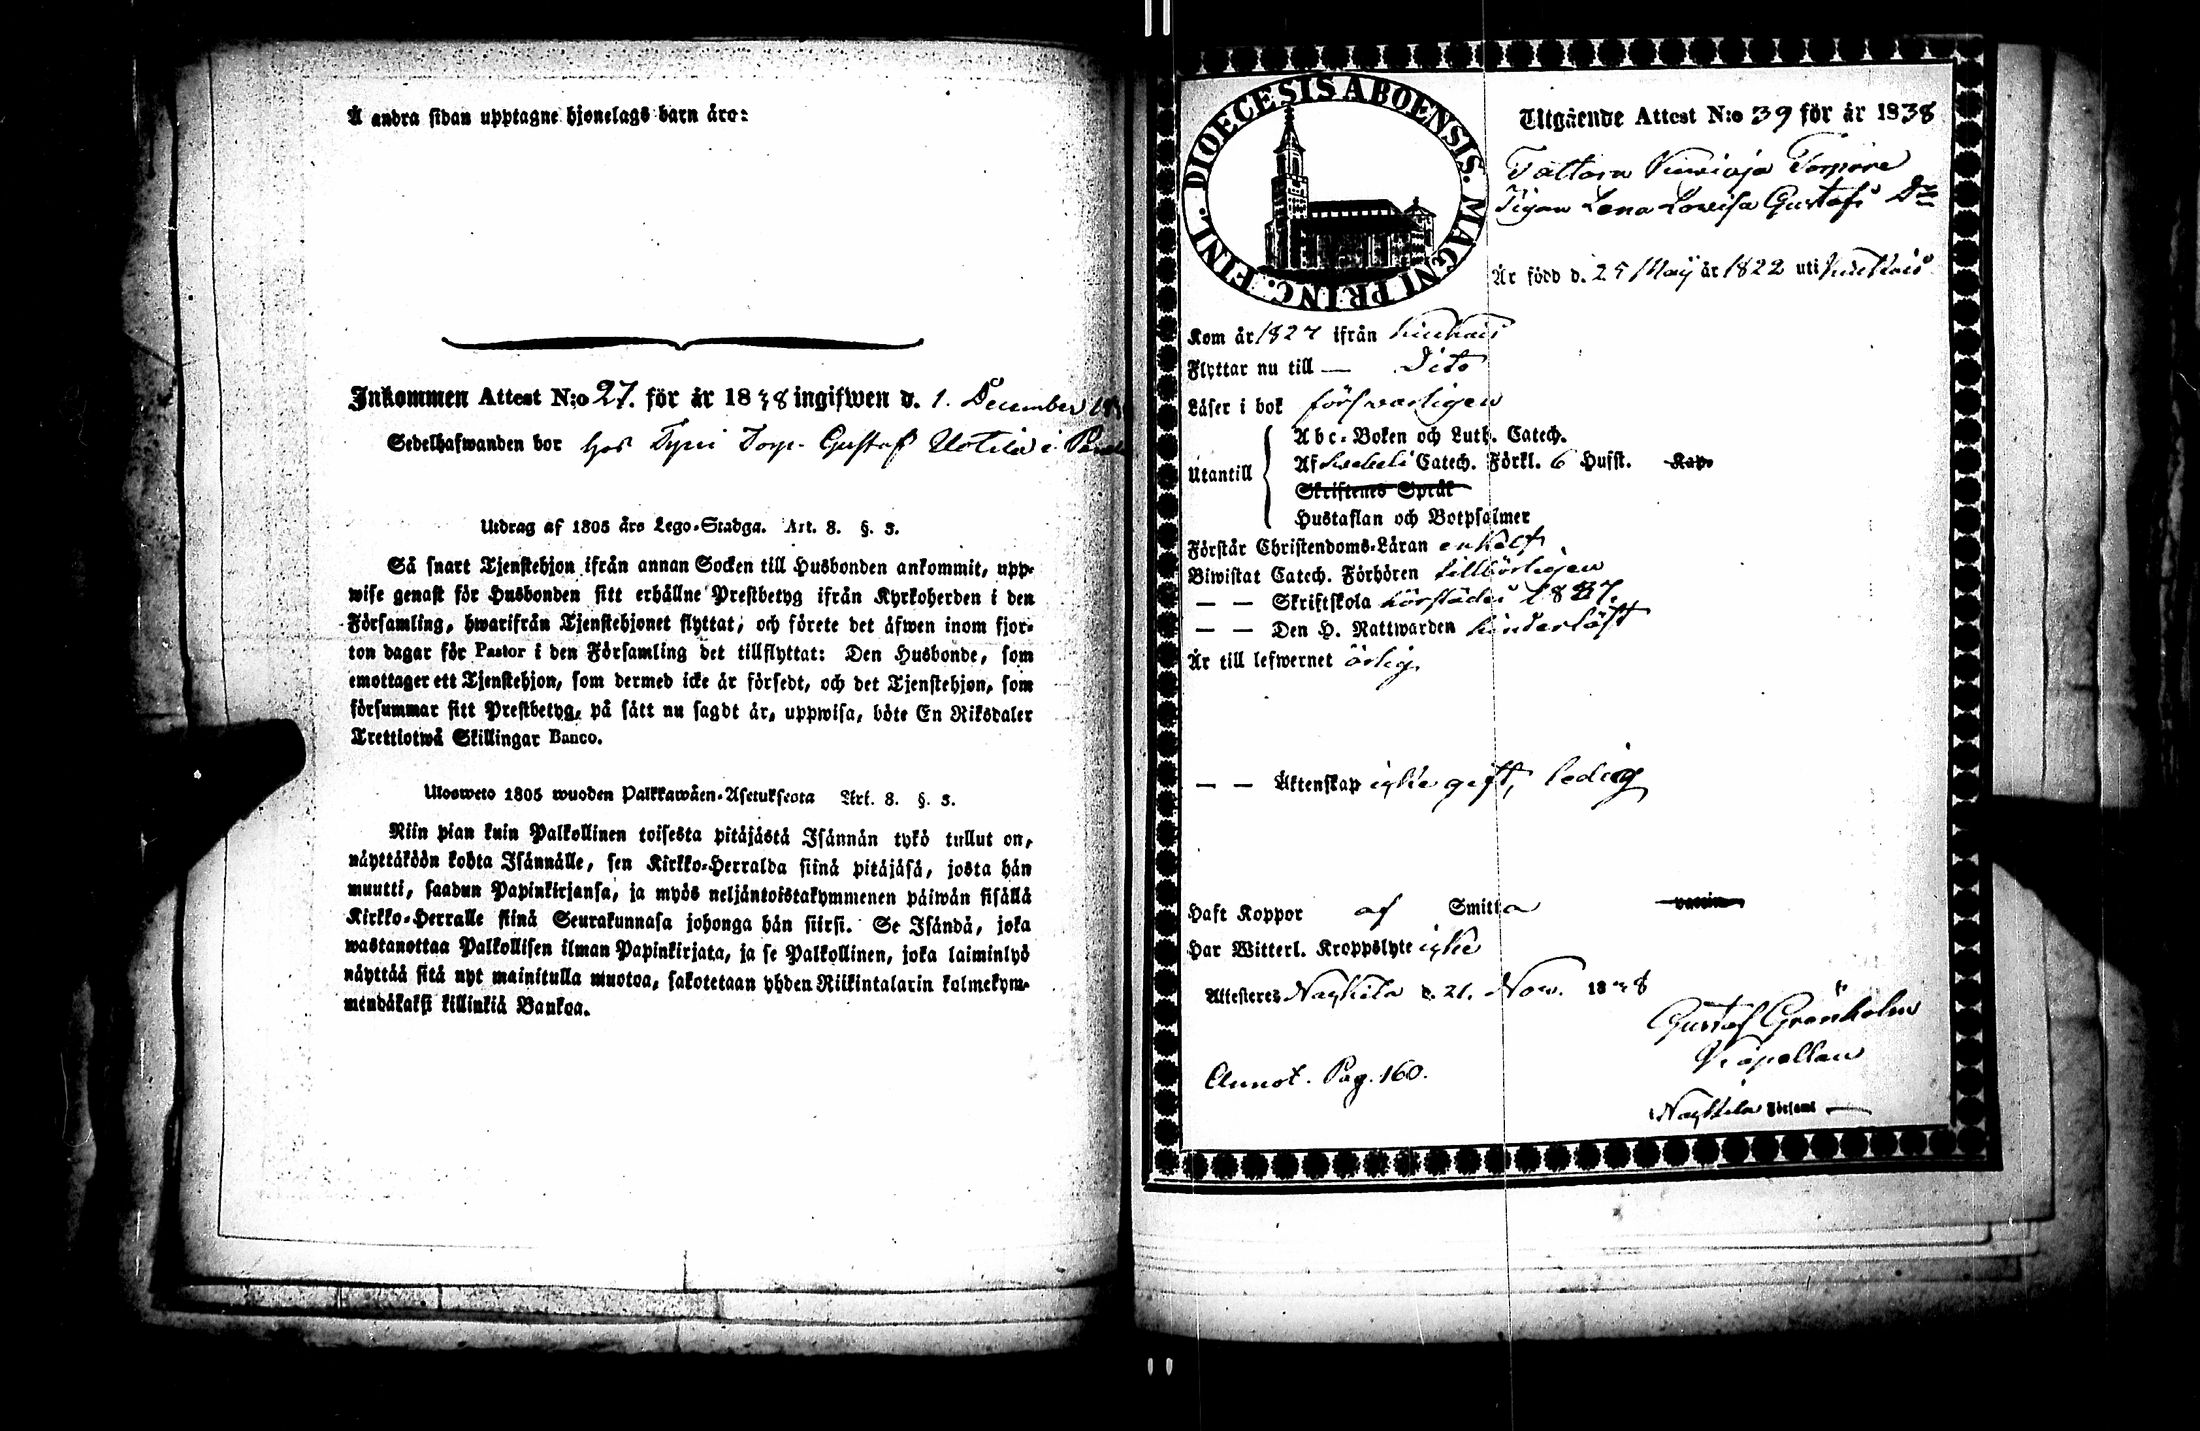 Å andra sidan upptagne hjonelags barn äro:
Inkommen Attest N:o 27. för år 1838 ingifwen d. 1. December
Sedelhafwanden bor hos Torp. Gustaf Uotila i
Utdrag af 1805 års Lego-Stadga. Art. 8. §. 3.
Så snart Tjenstehjon ifrån annan Socken till Husbonden ankommit, upp-
wise genast för Husbonden sitt erhållne Prestbetyg ifrån Kyrkoherden i den
Församling, hwarifrån Tjenstehjonet flyttat, och förete det äfwen inom fjor-
ton dagar för Pastor i den Församling det tillflyttat: Den Husbonde, som
emottager ett Tjenstehjon, som dermed icke är försedt, och det Tjenstehjon, som
försummar sitt Prestbetyg, på sätt nu sagdt är, uppwisa, böte En Riksdaler
Trettiotwå Skillingar Banco.
Ulosweto 1805 wuoden Palkkawäen-Asetuksesta Art. 8. §. 3.
Niin pian kuin Palkollinen toisesta pitäjästä Isännän tykö tullut on,
näyttäköön kohta Isännälle, sen Kirkko-Herralda siinä pitäjäsä, josta hän
muutti, saadun Papinkirjansa, ja myös neljäntoistakymmenen päiwän sisällä
Kirkko-Herralle siinä Seurakunnasa johonga hän siirsi. Se Isändä, joka
wastanottaa Palkollisen ilman Papinkirjata, ja se Palkollinen, joka laiminlyö
näyttää sitä nyt mainitulla muotoa, sakotetaan yhden Riikintalarin kolmekym-
mendäkaksi killinkiä Bankoa.
DIOECESIS ABOENSIS. MAGNI PRINC. FINL.
Utgående Attest N:o 39 för år 1838
Tattara
Pigan Lena Lovisa Gustafs Dr
Är född d. 25 Maÿ år 1822 uti Kiukais
Kom år 1827 ifrån Kiukais
Flyttar nu till — Dito
Läser i bok förswarligen
Utantill
Abc-Boken och Luth. Catech.
Af Swebeli Catech. Förkl. 6 Hufst. Kap.
Skriftenes Språk
Hustaflan och Botpsalmer
Förstår Christendoms-Läran enkelt
Biwistat Catech. Förhören tillbörligen
— — Skriftskola 1837.
— — Den H. Nattwarden hinderlöst
Är till lefwernet ärlig.
— — Äktenskap icke gift, ledig
Haft Koppor af Smitta vaccin
Har Witterl. Kroppslyte icke
Attesteres Nackila d. 21. Nov. 1838
Gustaf Grönholm
Kapellan
Annot. Pag. 160.
Nackila Församl —